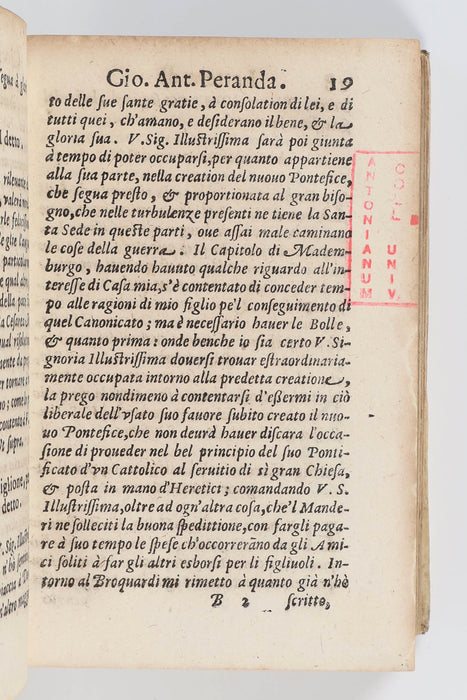 Gio. Ant. Peranda. 19
to delle sue sante gratie, à consolation di lei, e di
tutti quei, ch'amano, e desiderano il bene, & la
gloria sua. V. Sig. Illustrissima sarà poi giunta
à tempo di poter occuparsi, per quanto appartiene
alla sua parte, nella creation del nuouo Pontefice,
che segua presto, & proportionata al gran biso-
gno, che nelle turbulenze presenti ne tiene la San-
ta Sede in queste parti, oue assai male caminano
le cose della guerra. Il Capitolo di Madem-
burgo, hauendo hauuto qualche riguardo all'in-
teresse di Casa mia, s'è contentato di conceder tem-
po alle ragioni di mio figlio pe'l conseguimento di
quel Canonicato; ma è necessario hauer le Bolle,
& quanto prima: onde benche io sia certo V. Si-
gnoria Illustrissima douersi trouar estraordinaria-
mente occupata intorno alla predetta creatione,
la prego nondimeno à contentarsi d'essermi in ciò
liberale dell'vsato suo fauore subito creato il nuo-
uo Pontefice, che non deurà hauer discara l'occa-
sione di proueder nel bel principio del suo Ponti-
ficato d'vn Cattolico al seruitio di sì gran Chiesa,
& posta in mano d'Heretici; comandando V. S.
Illustrissima, oltre ad ogn'altra cosa, che'l Mande-
ri ne solleciti la buona speditione, con fargli paga-
re à suo tempo le spese ch'occorrerāno da gli Ami-
ci soliti à far gli altri esborsi per li figliuoli. In-
torno al Broquardi mi rimetto à quanto già n'hò
B 2 scritto,
COLL UNIV
ANTONIANUM